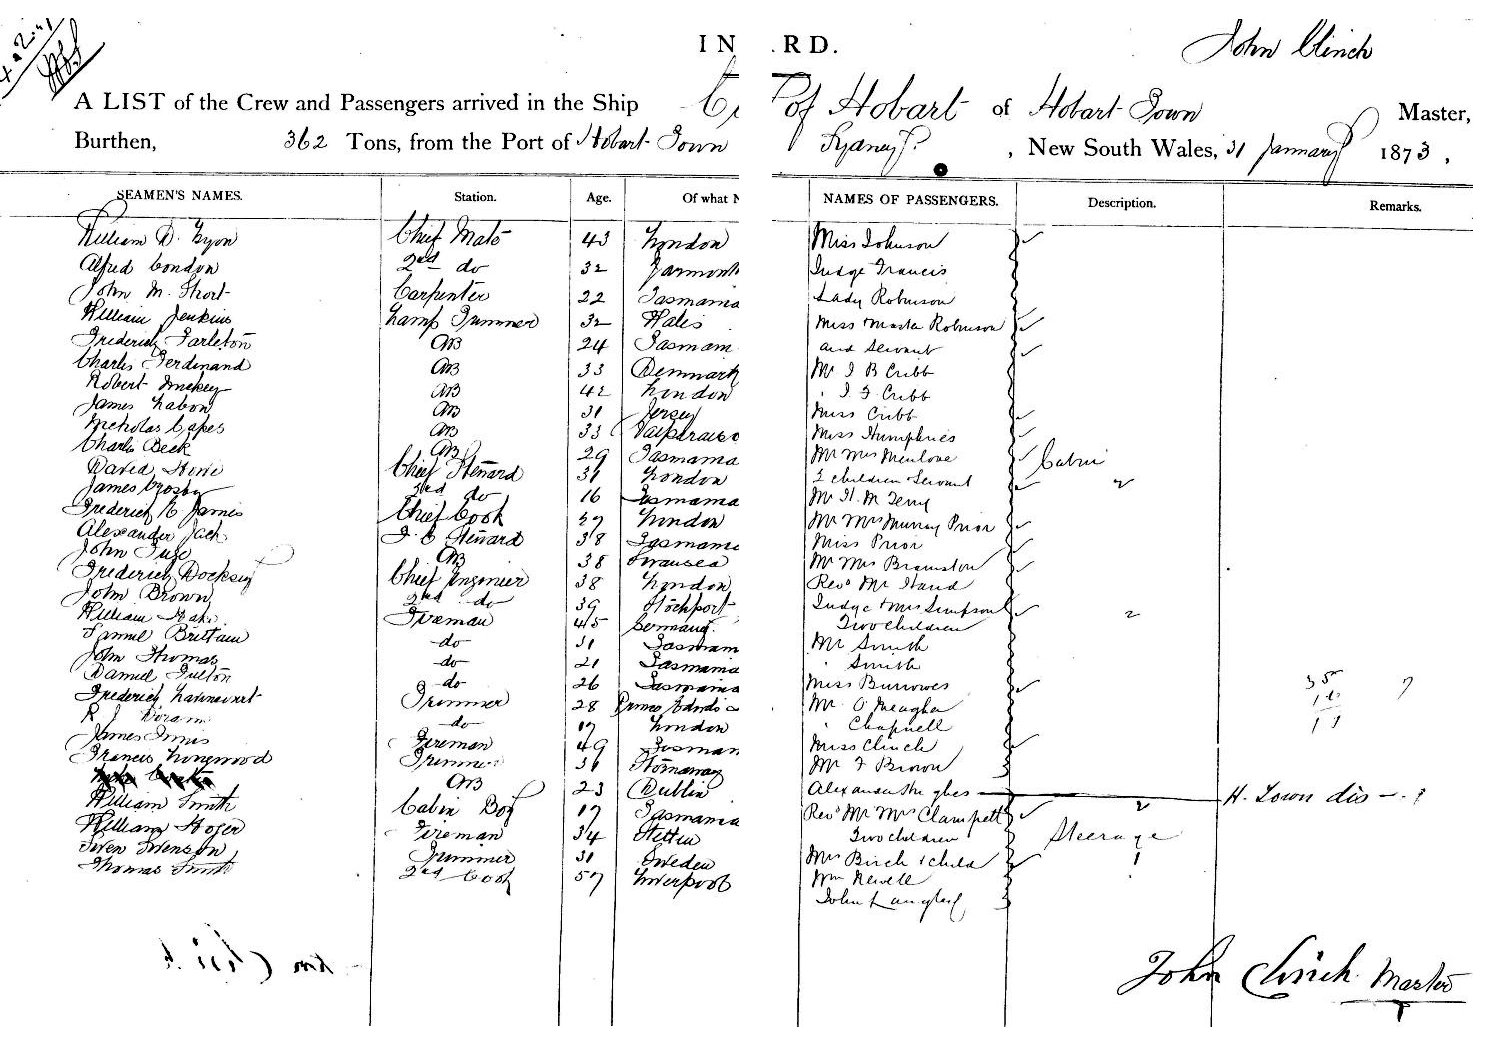 INWARD.
John Clinch
A LIST of the Crew and Passengers arrived in the Ship City of Hobart of Hobart Town Master,
Burthen, 362 Tons, from the Port of Hobart Town Sydney , New South Wales, 31 January 1873,
SEAMEN'S NAMES. Station. Age. Of what N NAMES OF PASSENGERS. Description. Remarks.
William D. Lyon Chief Mate 43 London Miss Johnson
Alfred Condon 2nd do 32 Yarmouth Judge Francis
John M. Short Carpenter 22 Tasmania Lady Robinson
William Jenkins Lamp Trimmer 32 Wales Miss Master Robinson
Frederick Tarleton AB 24 Tasman and Servant
Charles Ferdinand AB 33 Denmark Mr J B Cribb
Robert AB 42 London " J F Cribb
James Labon AB 31 Jersey Miss Cribb
Nicholas Capes AB 33 Valparaiso Miss Humphries
Charles Beck AB 29 Tasmania Mr Mrs Menlove Cabin
David Howe Chief Steward 31 London 2 children Servant 2
James Crosby 2nd do 16 Tasmania Mr H. M Terry
Frederick C James Chief Cook London Mr Mrs Murray Prior
Alexander Jack Steward 38 Tasmania Miss Prior
John AB 38 Swansea Mr Mrs Bramston
Frederick Docksey Chief Engineer 38 London Revd Mr Hand
John Brown 2nd do 39 Stockport Judge & Mrs Simpson 2
William Fireman 45 Germany Two children
Samuel Brittain do 31 Tasman Mr Smith
John Thomas do 21 Tasmania " Smith
Daniel Fulton do 26 Tasmania Miss Burrowes 35
Frederick Trimmer 28 Prince Mr O'Meagher
R J Doram do 17 London " Chapnell
James Innis Fireman 49 Tasman Miss Clinch
Francis Longwood Trimmer 31 Stornaway Mr F Brown
AB 23 Dublin Alexander H. Town dis
William Smith Cabin Boy 17 Tasmania Revd Mr Mrs Clampett 2
William Hofer Fireman 34 Stettin Two children Steerage
Swen Swenson Trimmer 31 Sweden Mrs Birch & child 1
Thomas Smith 2nd Cook 57 Liverpool Wm Newell
John Langley
John Clinch Master